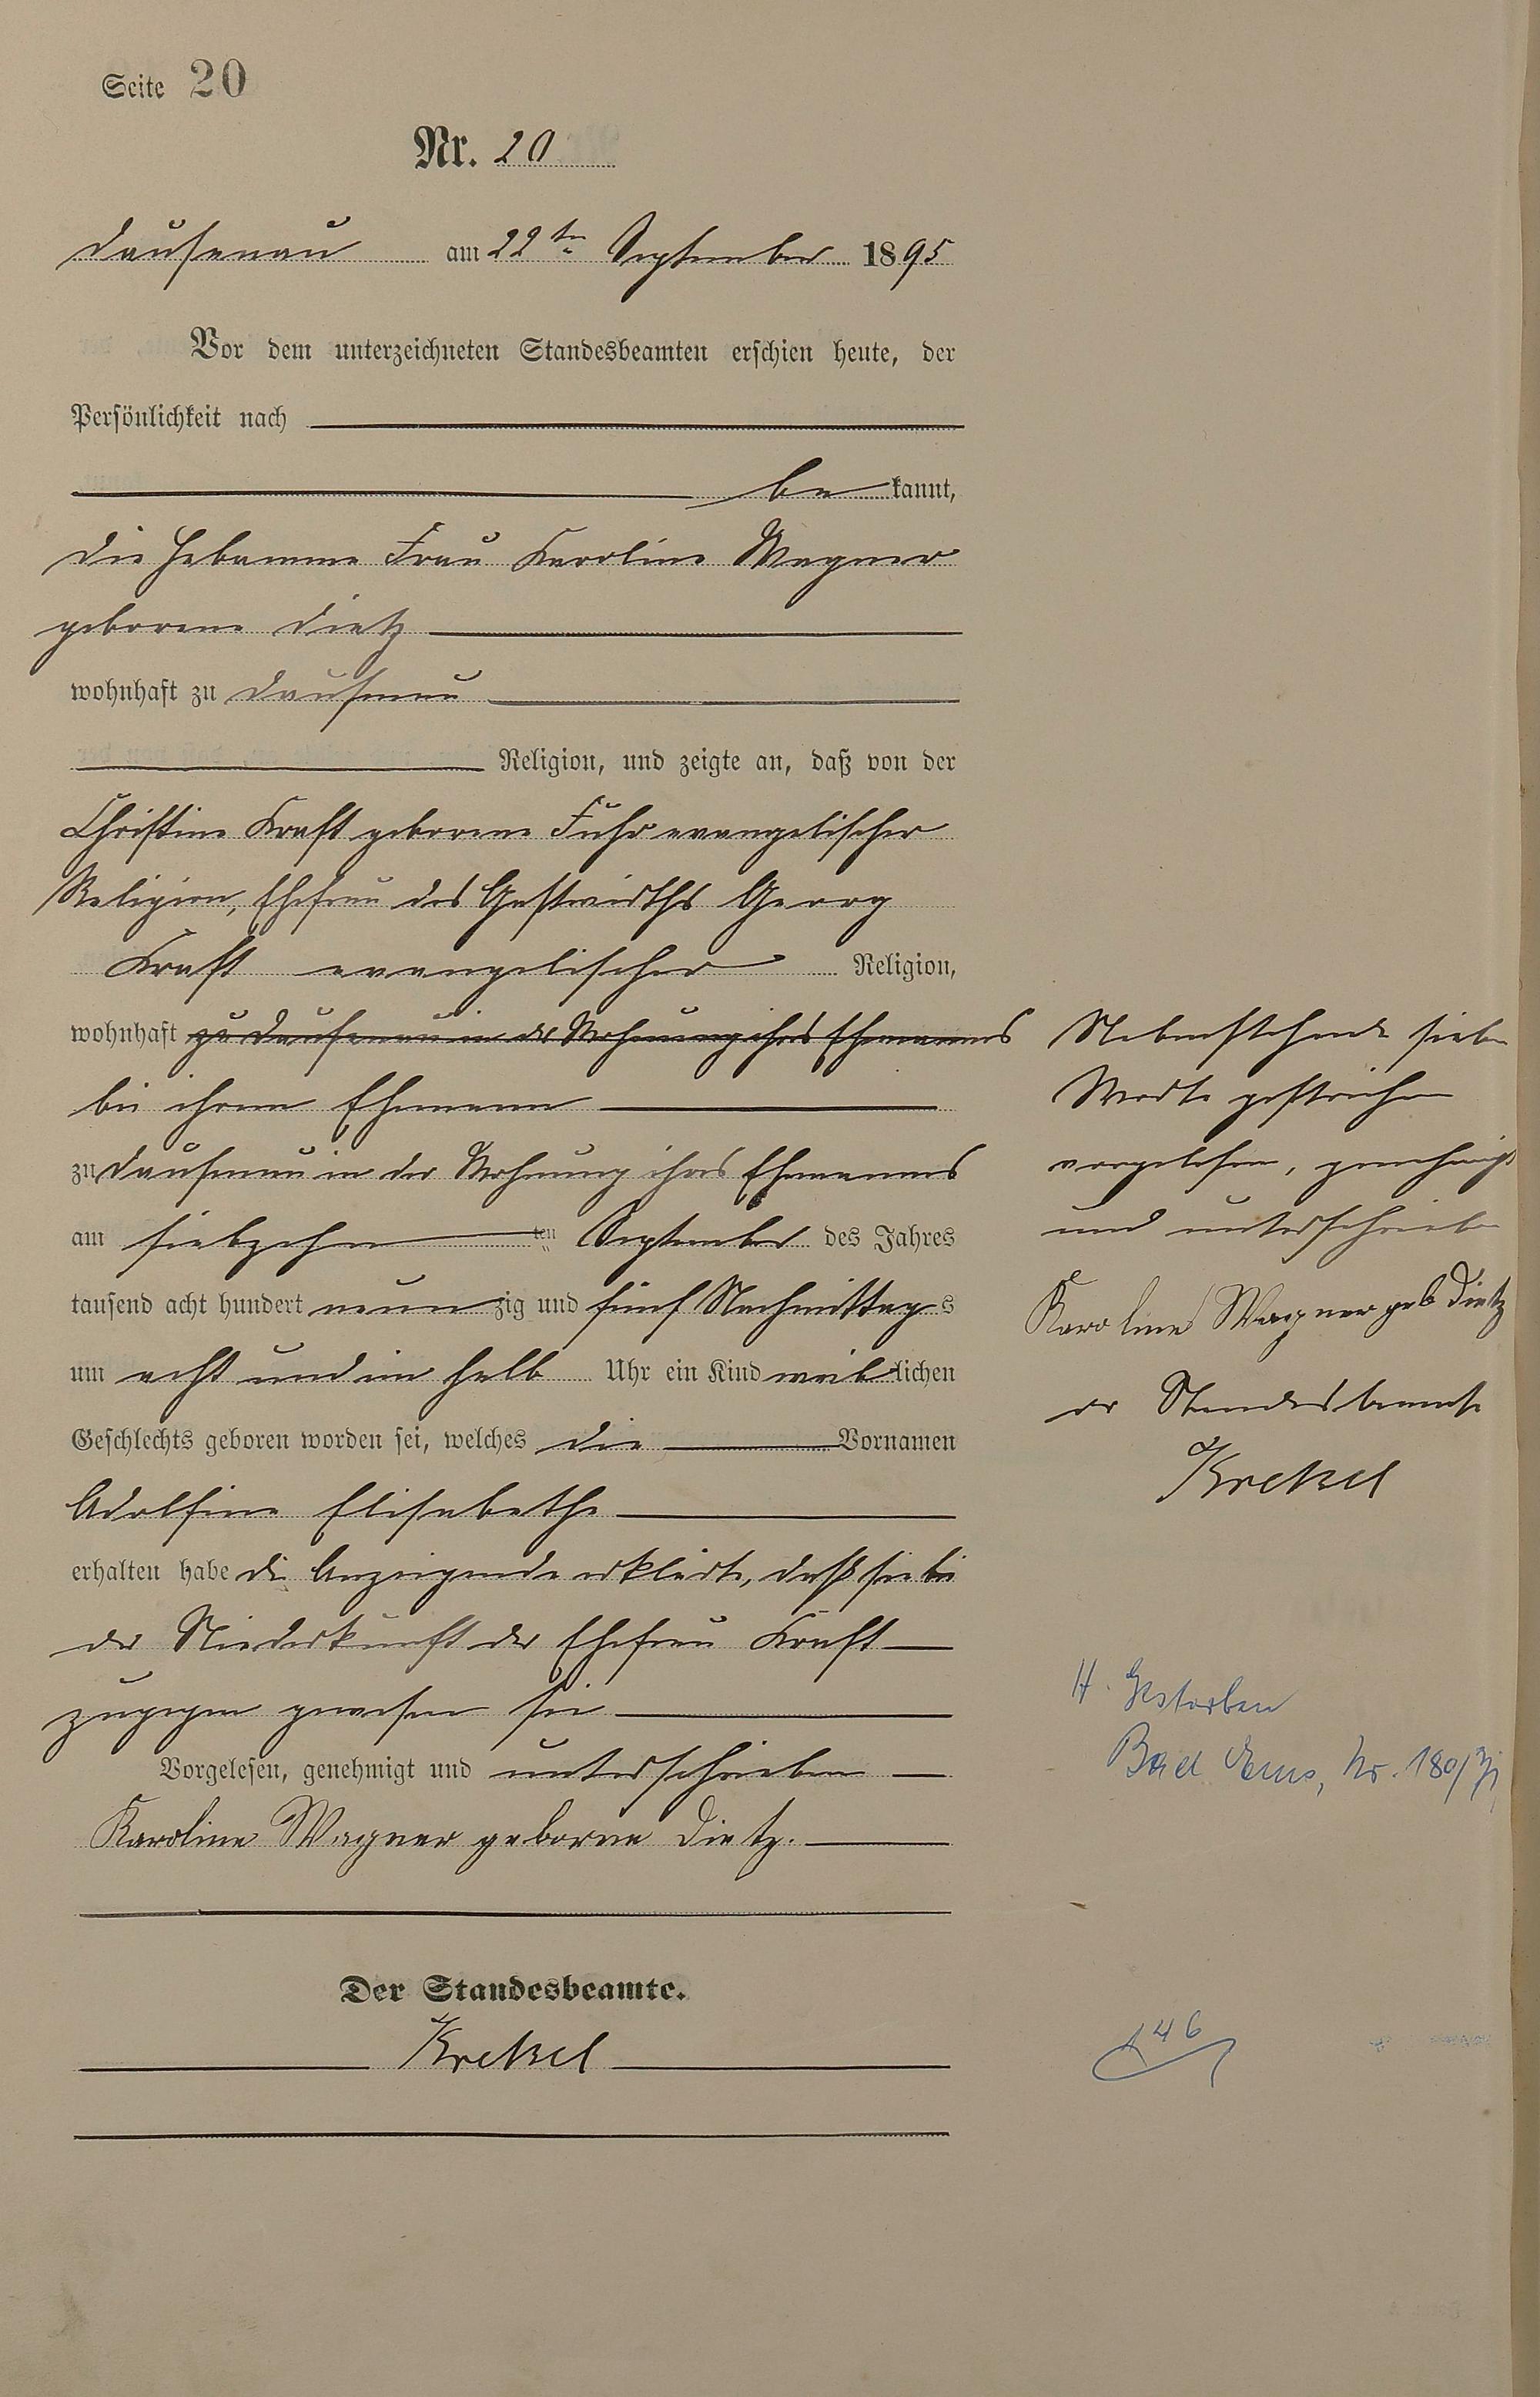 Seite 20
Nr. 20
Dausenau am 22ten September 1895
Vor dem unterzeichneten Standesbeamten erschien heute, der
Persönlichkeit nach
be kannt,
die Hebamme Frau Karoline Wagner
geborene Dietz
wohnhaft zu Dausenau
Religion, und zeigte an, daß von der
Christine Kraft geborene Fuhr evangelischer
Religion, Ehefrau des Gastwirths Georg
Kraft evangelischer Religion,
wohnhaft zu Dausenau in der Wohnung ihres Ehemannes
bei ihrem Ehemann
zu Dausenau in der Wohnung ihres Ehemannes
am siebzehn ten September des Jahres
tausend acht hundert neun zig und fünf Nachmittag s
um acht und ein halb Uhr ein Kind weib lichen
Geschlechts geboren worden sei, welches die Vornamen
Adolfine Elisabethe
erhalten habe die Anzeigende erklärte, daß sie bei
der Niederkunft der Ehefrau Kraft
zugegen gewesen sei
Vorgelesen, genehmigt und unterschrieben
Karoline Wagner geborne Dietz.
Der Standesbeamte.
Krekel
Nebenstehende sieben
Worte gestrichen
vorgelesen, genehmigt
und unterschrieben
Karoline Wagner geb Dietz
der Standesbeamte
Krekel
H. Gestorben
Bad Ems, Nr. 180/71
146